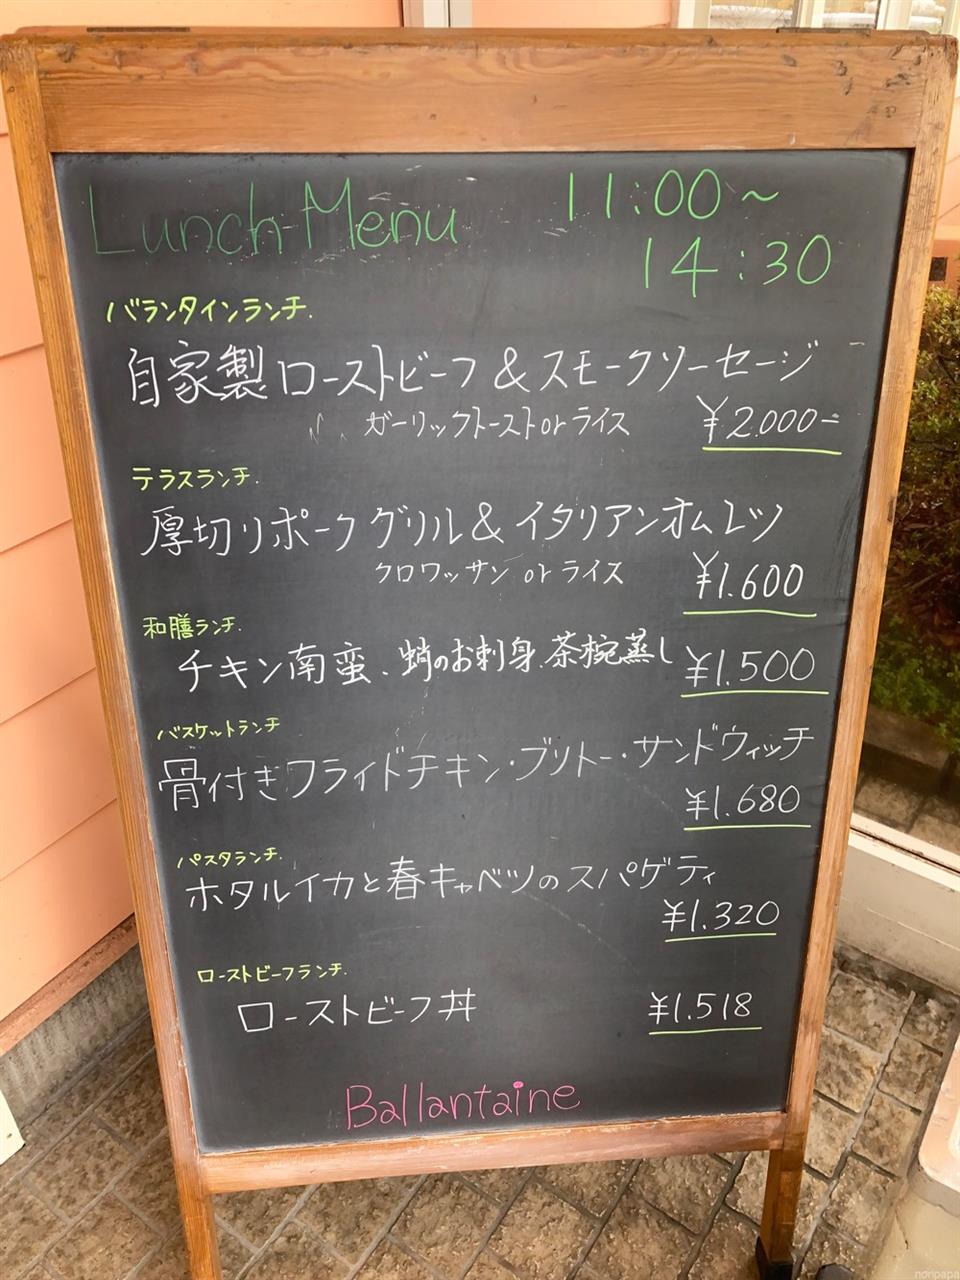 Lunch Menu 11:00~
14:30
バランタインランチ.
自家製ローストビーフ&スモークソーセージ
ガーリックトーストorライス ¥2.000-
テラスランチ.
厚切りポークグリル&イタリアンオムレツ
クロワッサン orライス ¥1.600
和膳ランチ.
チキン南蛮、蛸のお刺身、茶椀蒸し ¥1.500
バスケットランチ
骨付きフライドチキン・ブリトー・サンドウィッチ
¥1.680
パスタランチ.
ホタルイカと春キャベツのスパゲティ
¥1.320
ローストビーフランチ.
ローストビーフ丼 ¥1.518
Ballantaine
noripapa